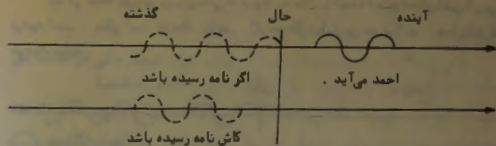 آینده حال گذشته
احمد می‌آید . اگر نامه رسیده باشد
کاش نامه رسیده باشد